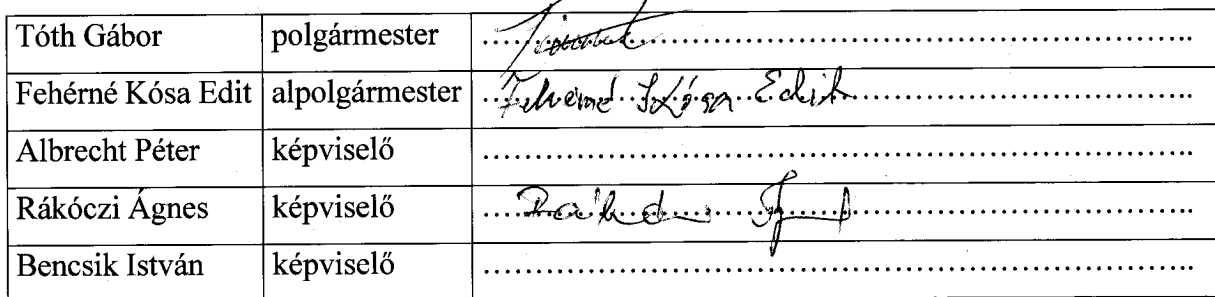 Tóth Gábor polgármester ........................
Fehérné Kósa Edit alpolgármester Fehérné Kósa Edit
Albrecht Péter képviselő ........................
Rákóczi Ágnes képviselő ........................
Bencsik István képviselő ........................